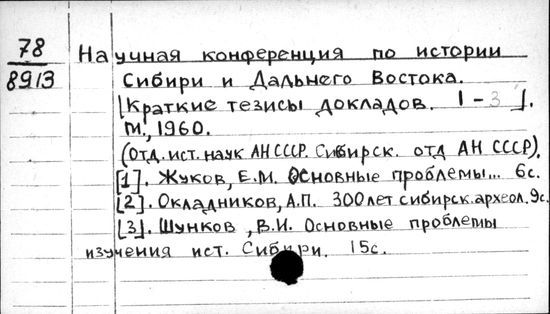 78
8913
Научная конференция по истории
Сибири и Дальнего Востока.
[Краткие тезисы докладов. 1-3].
М., 1960.
(Отд. ист. наук АН СССР. Сибирск. отд АН СССР).
[1]. Жуков, Е.М. Основные проблемы... 6с.
[2]. Окладников, А.П. 300 лет сибирск. археол. 9с.
[3]. Шунков, В.И. Основные проблемы
изучения ист. Сибири. 15с.